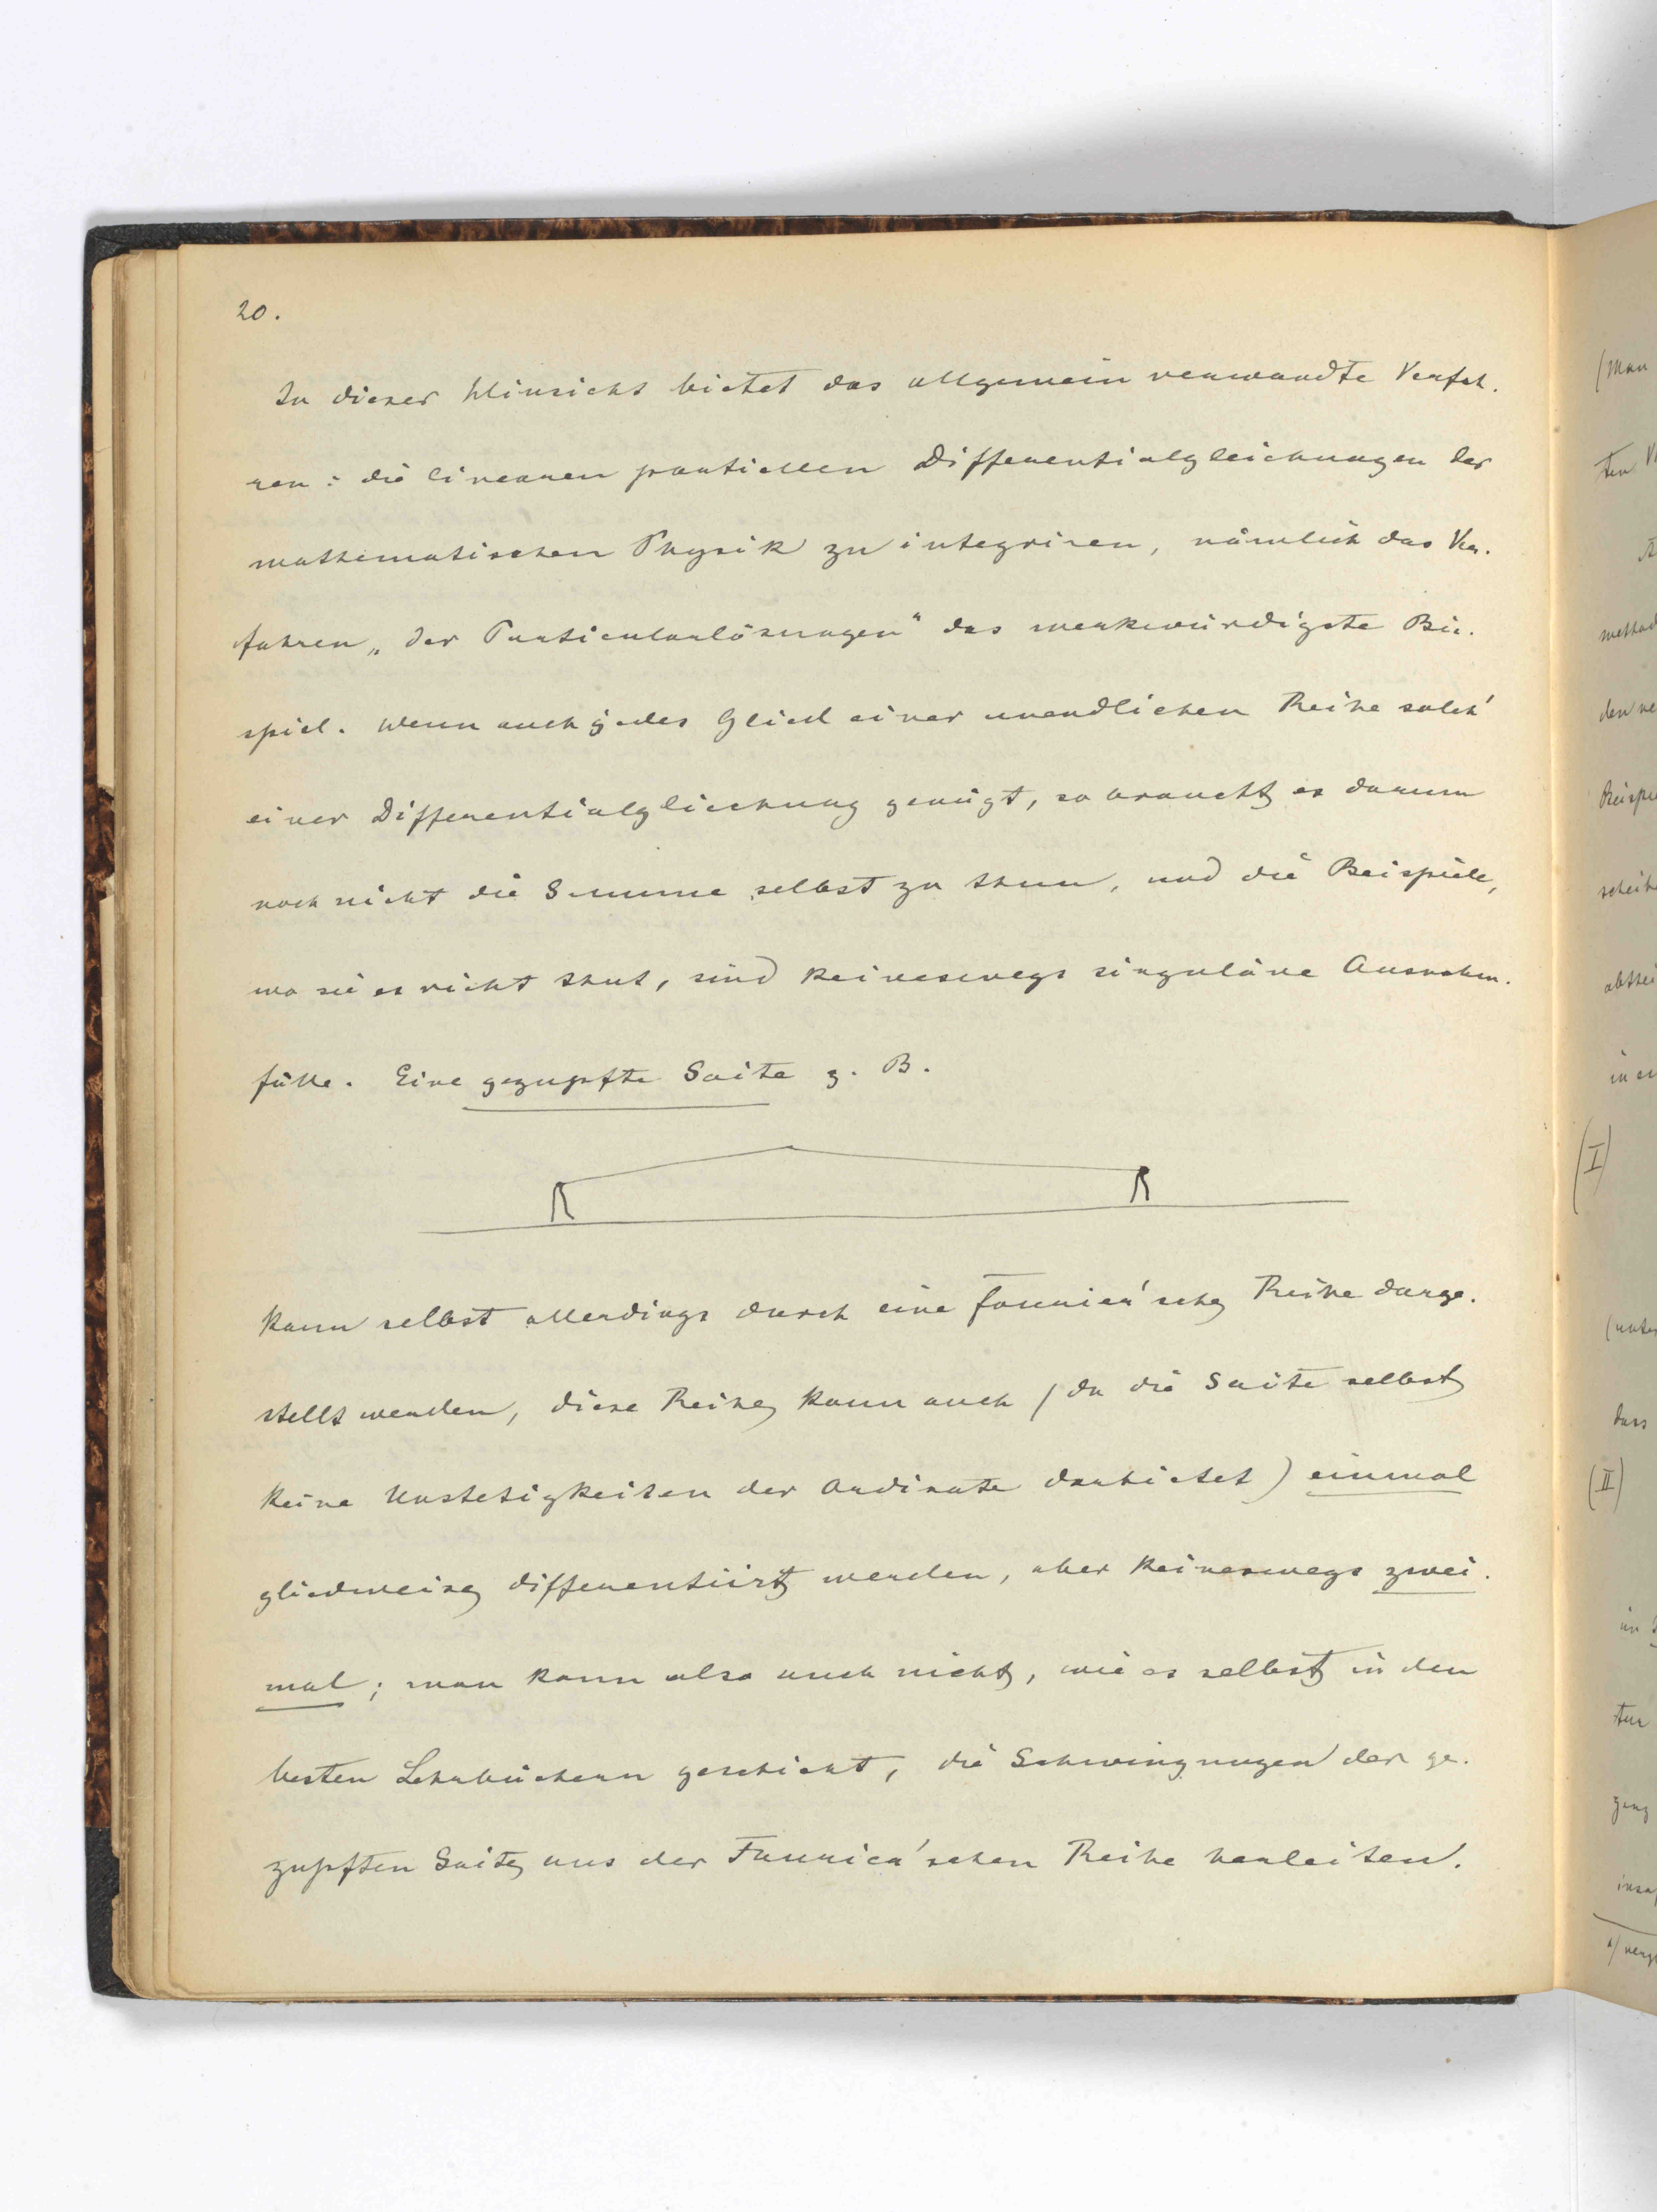 20.
In dieser Hinsicht bietet das allgemein verwandte Verfah-
ren: die linearen partiellen Differentialgleichungen der
mathematischen Physik zu integriren, nämlich das Ver-
fahren „der Particularlösungen" das merkwürdigste Bei-
spiel. Wenn auch jedes Glied einer unendlichen Reihe solch'
einer Differentialgleichung genügt, so braucht es darum
noch nicht die Summe selbst zu thun, und die Beispiele,
wo sie es nicht thut, sind keineswegs singuläre Ausnahm-
fälle. Eine gezupfte Saite z. B.
kann selbst allerdings durch eine Fourier'sche Reihe darge-
stellt werden, diese Reihe kann auch (da die Saite selbst
keine Unstetigkeiten der Ordinate darbietet) einmal
gliedweise differentiirt werden, aber keineswegs zwei-
mal; man kann also auch nicht, wie es selbst in den
besten Lehrbüchern geschieht, die Schwingungen der ge-
zupften Saite aus der Fourier'schen Reihe herleiten.
(Man
ten
method
den
Beispi
in
(I)
(unter
dass
(II)
im
tur
ganz